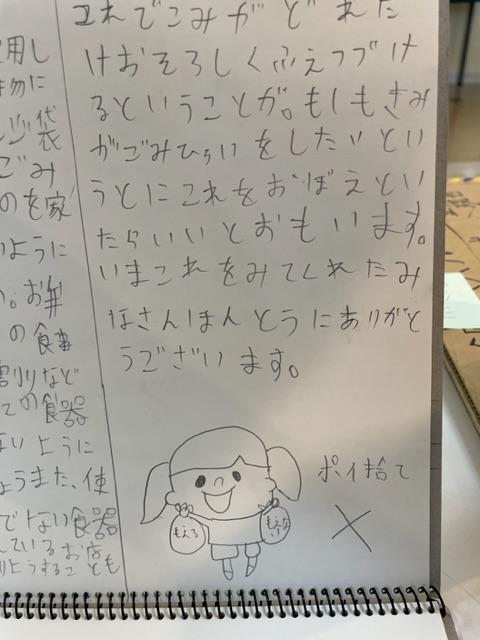 これでごみがどれた
けおそろしくふえつづけ
るということが。もしもきみ
がごみひろいをしたいとい
うとにこれをおぼえとい
たらいいとおもいます。
いまこれをみてくれたみ
なさんほんとうにありがと
うございます。
ポイ捨て
もえる
もえない
用し
物に
袋
ごみ
のを家
いように
。お弁
の食事
割りなど
ての食器
ないように
ょうまた、使
でない食器
しているお店